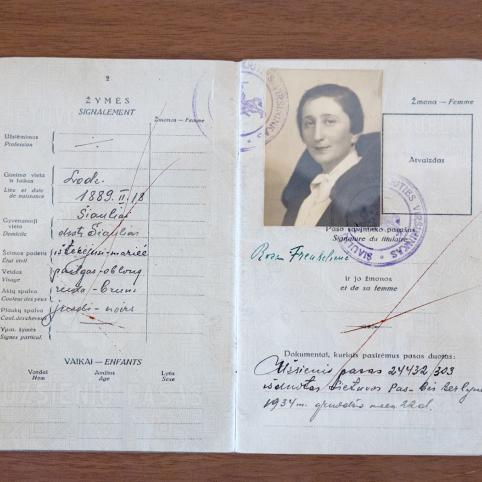 2
ŽYMĖS
SIGNALEMENT
Žmona — Femme
Užsiėmimas
Profession
Gimimo vieta ir laikas
Lieu et date de naissance
Lodz.
1889. II. 18
Gyvenamoji vieta
Domicile
Šiauliai
Šiauliai
Šeimos padėtis
État civil
ištekėjusi-mariée
Veidas
Visage
pailgas-oblong
Akių spalva
Couleur des yeux
ruda-bruns
Plaukų spalva
Coul. des cheveux
juodi-noirs
Ypat. žymės
Signes particul.
VAIKAI — ENFANTS
Vardai
Nom
Amžius
Age
Lytis
Sexe
Žmona — Femme
Atvaizdas
Paso savininko parašas
Signature du titulaire
Rosa Frenkelienė
ir jo žmonos
et de sa femme
Dokumentai, kuriais pasirėmus pasas duotas:
Užsienio pasas 24432/303
išduotas Lietuvos Pas-bės Berlyne
1934 m. gruodžio mėn. 22 d.